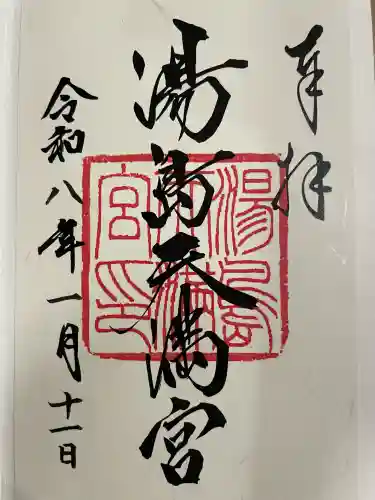 奉拝
湯島天満宮
湯島天満宮印
令和八年一月十一日